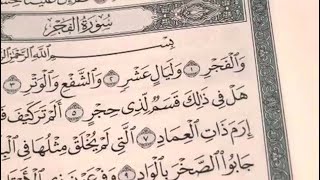 سُورَةُ الفَجْرِ
بِسْمِ اللَّهِ الرَّحْمَٰنِ
وَالْفَجْرِ ١ وَلَيَالٍ عَشْرٍ ٢ وَالشَّفْعِ وَالْوَتْرِ ٣
هَلْ فِي ذَٰلِكَ قَسَمٌ لِّذِي حِجْرٍ ٥ أَلَمْ تَرَ كَيْفَ فَعَلَ
إِرَمَ ذَاتِ الْعِمَادِ ٧ الَّتِي لَمْ يُخْلَقْ مِثْلُهَا فِي
جَابُوا الصَّخْرَ بِالْوَادِ ٩ وَفِرْعَوْنَ ذِي